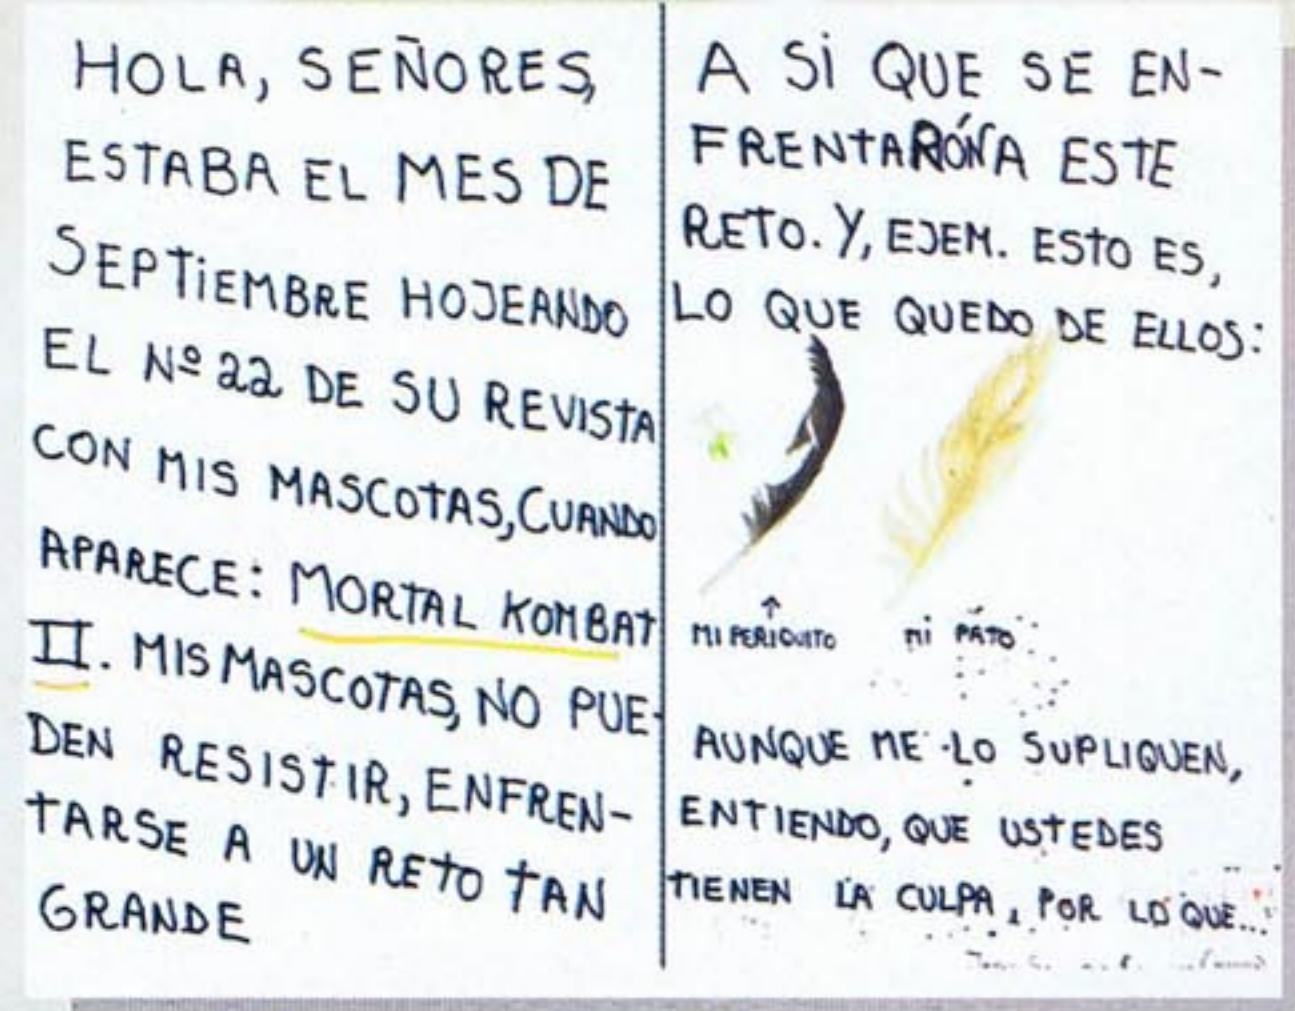 HOLA, SEÑORES,
ESTABA EL MES DE
SEPTIEMBRE HOJEANDO
EL Nº 22 DE SU REVISTA
CON MIS MASCOTAS, CUANDO
APARECE: MORTAL KOMBAT
II. MIS MASCOTAS, NO PUE-
DEN RESISTIR, ENFREN-
TARSE A UN RETO TAN
GRANDE
A SI QUE SE EN-
FRENTARÓN A ESTE
RETO. Y, EJEM. ESTO ES,
LO QUE QUEDO DE ELLOS:
MI PERIQUITO MI PATO
AUNQUE ME LO SUPLIQUEN,
ENTIENDO, QUE USTEDES
TIENEN LA CULPA, POR LO QUE...